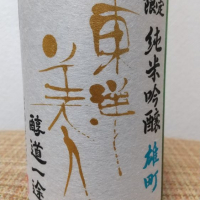 限定 純米吟醸 雄町
東洋美人
醇道一途